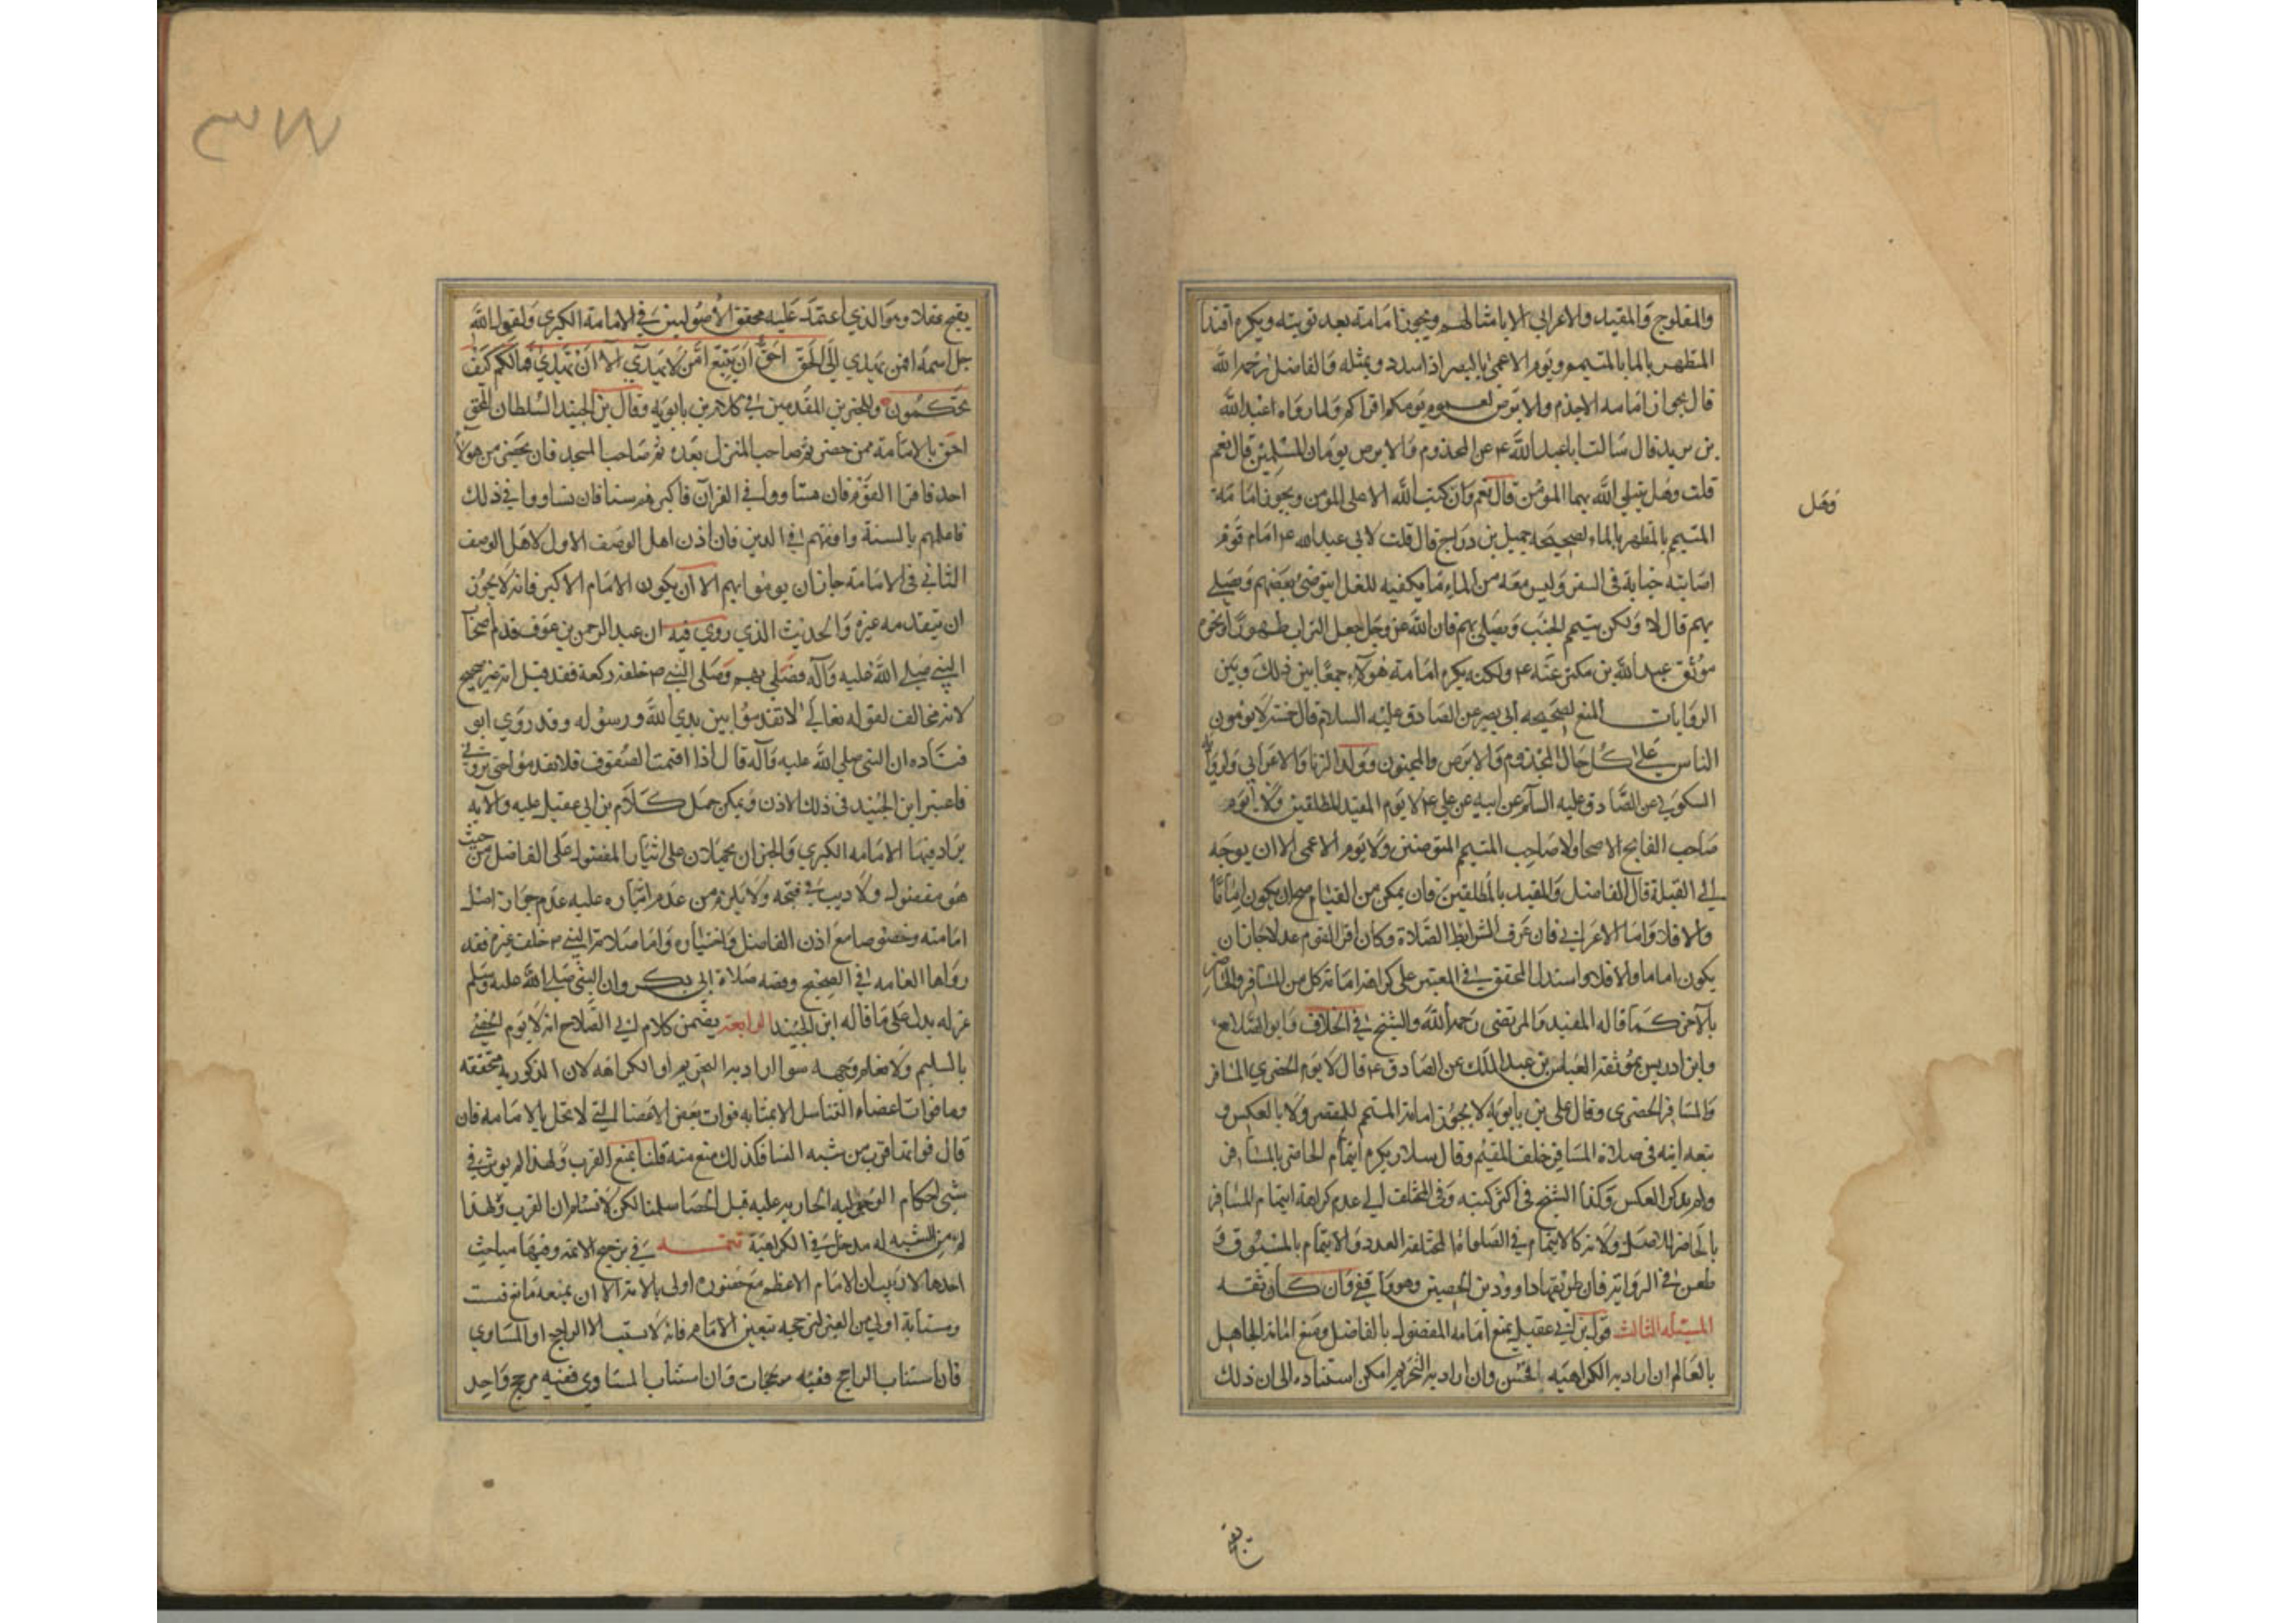 والمفلوج والمقيد والاعرابي الا بامثالهم ويجوز امامته بعد توبته ويكره اقتدا
المتطهر بالما بالمتيمم ويوم الاعمى بالبصير اذا سدد ومثله والفاضل رحمه الله
قال بجواز امامه الاجذم والابرص يومكم اقراكم ولما رواه عبد الله
بن يزيد قال سالت ابا عبد الله ع عن المجذوم والابرص يومان المسلمين قال نعم
قلت وهل يبتلي الله بهما المومن قال نعم وان كتب الله الا على المومن ويجوز امامة
المتيمم بالمتطهر بالماء لصحيحة جميل بن دراج قال قلت لابي عبد الله ع امام قوم
اصابته جنابة في السفر وليس معه من الماء ما يكفيه للغسل ايتوضئ بعضهم ويصلي
بهم قال لا ولكن يتيمم الجنب ويصلي بهم فان الله عز وجل جعل التراب طهورا ونحوه
موثق عبد الله بن بكير عنه ع ولكنه يكره امامة هولاء جمعا بين ذلك وبين
الروايات المنع لصحيحه ابي بصير عن الصادق عليه السلام قال خمسة لا يومون
الناس على كل حال المجذوم والابرص والمجنون وولد الزنا والاعرابي ولرواية
السكوني عن الصادق عليه السلم عن ابيه عن علي ع لا يوم المقيد المطلقين ولا يوم
صاحب الفالج الاصحا ولا صاحب المتيمم المتوضئين ولا يوم الاعمى الا ان يوجه
الى القبلة قال الفاضل والمقيد بالمطلقين فان يمكن من القيام صح ان يكون اماما
والا فلا واما الاعرابي فان عرف الشرايط الصلاة وكان اقرا القوم عدلا جاز ان
يكون اماما والا فلا واستدل المحقق في المعتبر على كراهة امامة كل من المسافر والحاضر
بالآخر كما قاله المفيد والمرتضى رحمه الله والشيخ في الخلاف وابو الصلاح
وابن ادريس بموثقة العباس بن عبد الملك عن الصادق ع قال لا يوم الحضري المسافر
والمسافر الحضري وقال علي بن بابويه لا يجوز امامة المتمم للمقصر ولا بالعكس و
تبعه ابنه في صلاة المسافر خلف المقيم وقال سلار يكره ايتمام الحاضر بالمسافر
ولم يذكر العكس وكذا الشيخ في اكثر كتبه وفي المختلف الى عدم كراهة ايتمام المسافر
بالحاضر للاصل ولانه كالايتمام في الصلوات المختلفة العدد والايتمام بالمسبوق و
طعن في الرواية فان طريقها داوود بن الحصين وهو واقفي وان كان ثقه
المسئله الثالث قول بن ابي عقيل يمنع امامه المفضول بالفاضل ومنع امامة الجاهل
بالعالم ان اراد به الكراهيه فحسن وان اراد به التحريم امكن استناده الى ان ذلك
وهل
يقبح
٣٧٧
يقبح عقلا وهو الذي اعتمد عليه محقق الاصوليين في الامامة الكبرى ولقول الله
جل اسمه افمن يهدي الى الحق احق ان يتبع امن لا يهدي الا ان يهدي فمالكم كيف
تحكمون وللخبرين المقدمين في كلام بن بابويه وقال بن الجنيد السلطان المحق
احق بالامامة ممن حضر ثم صاحب المنزل بعده ثم صاحب المسجد فان يحضر من هولا
احد فاقرا القوم فان تساووا في القرآن فاكبرهم سنا فان تساووا في ذلك
فاعلمهم بالسنة وافقههم في الدين فان اذن اهل الوصف الاول لاهل الوصف
الثاني في الامامة جاز ان يوموا بهم الا ان يكون الامام الاكبر فانه لا يجوز
ان يتقدمه غيره والحديث الذي روي فيه ان عبد الرحمن بن عوف قدم اصحاب
النبي صلى الله عليه وآله فصلى بهم وصلى النبي ص خلفه ركعة فقد قيل انه غير صحيح
لانه مخالف لقوله تعالى لا تقدموا بين يدي الله ورسوله وقد روي ابو
قتاده ان النبي صلى الله عليه وآله قال اذا اقيمت الصفوف فلا تقدموا حتى تروني
فاعتبر ابن الجنيد في ذلك الاذن ويمكن حمل كلام بن ابي عقيل عليه والآيه
يراد فيها الامامه الكبرى والخبران يحملان على ايثار المفضول على الفاضل من حيث
هو مفضول ولا ريب في قبحه ولا يلزم من عدم ايثاره عليه عدم جواز اصل
امامته وخصوصا مع اذن الفاضل واختياره واما صلاة النبي ص خلف غيره فقد
رواها العامه في الصحيح وقصه صلاة ابي بكر وان النبي صلى الله عليه وسلم
عزله يدل على ما قاله ابن الجنيد الرابعة يضمن كلام ابي الصلاح انه لا يوم الخصي
بالسليم ولا نعلم وجهه سوا اراد به التحريم او الكراهه لان الذكوريه محققه
وما فوات اعضاء التناسل الا بمثابه فوات بعض الاعضا التي لا تخل بالامامه فان
قال فواتها قرب من شبه النسا فكذلك منع منه قلنا يمنع القرب ولهذا لم يوثر في
شي احكام الرجوليه الجاريه عليه قبل الخصا سلمنا لكن لا نسلم ان القرب ولهذا
من الشبه له مدخل في الكراهية تتمه في ترجيح الائمه وفيها مباحث
احدها لا ريب ان الامام الاعظم مع حضوره اولى بالامامة الا ان يمنعه مانع فيستنيب
ومستنابه اولى من الغير لترجحه بتعيين الامام فانه لا يستنيب الا الراجح او المساوي
فان استناب الراجح ففيه مرجحات وان استناب المساوي ففيه مرجح واحد